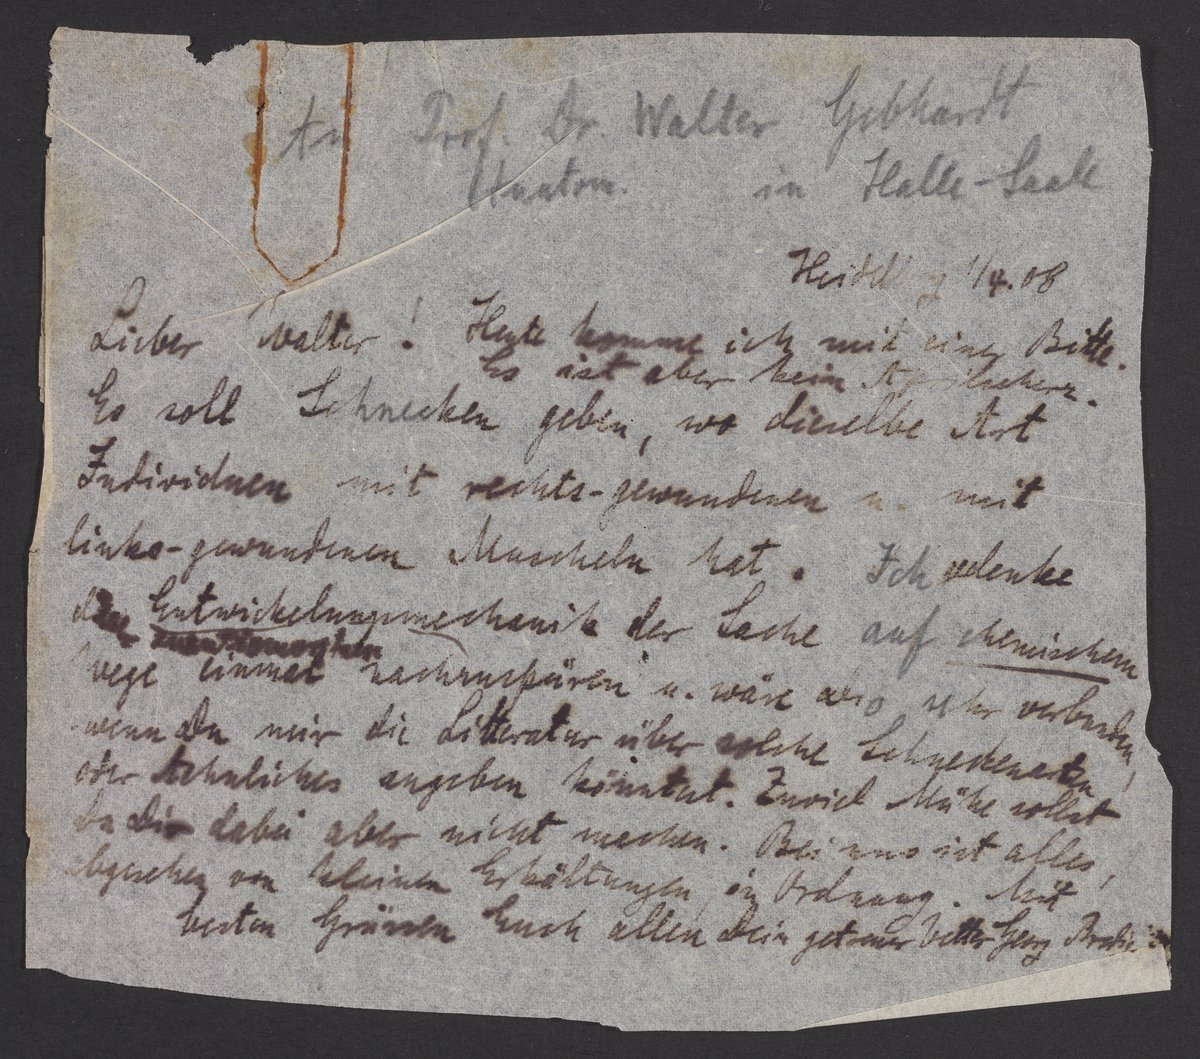 An Prof. Dr. Walter Gebhardt
Anatom. in Halle-Saale
Heidelbg 1/4.08
Lieber Walter! Heute komme ich mit einer Bitte.
Es ist aber kein Aprilscherz.
Es soll Schnecken geben, wo dieselbe Art
Individuen mit rechts-gewundenen u. mit
links-gewundenen Muscheln hat. Ich gedenke
der Entwickelungsmechanik der Sache auf chemischem
enantiomorphen
Wege einmal nachzuspüren u. wäre also sehr verbunden,
wenn Du mir die Litteratur über solche Schneckenarten
oder Aehnliches angeben könntest. Zuviel Mühe sollst
Du Dir dabei aber nicht machen. Bei uns ist alles,
abgesehen von kleinen Erkältungen, in Ordnung. Mit
besten Grüssen Euch allen Dein getreuer Vetter Georg